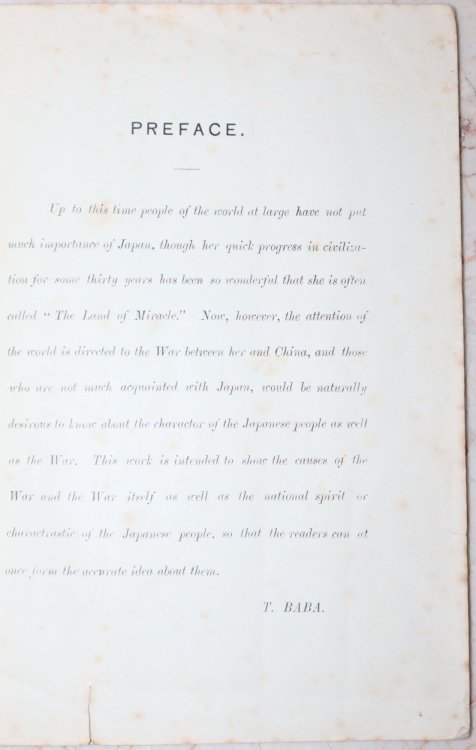 PREFACE.
Up to this time people of the world at large have not put
much importance of Japan, though her quick progress in civiliza-
tion for some thirty years has been so wonderful that she is often
called “ The Land of Miracle.” Now, however, the attention of
the world is directed to the War between her and China, and those
who are not much acquainted with Japan, would be naturally
desirous to know about the charactor of the Japanese people as well
as the War. This work is intended to show the causes of the
War and the War itself as well as the national spirit or
charactrastic of the Japanese people, so that the readers can at
once form the accurate idea about them.
T. BABA.